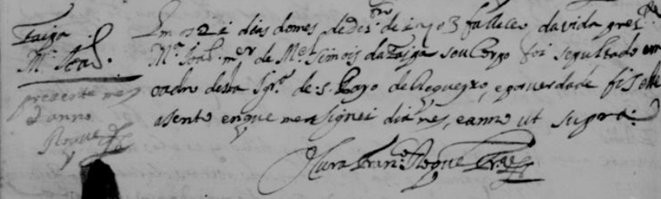 Faiga
Mª Joal.
presente mes
d anno
Roque
Em os 21 dias do mes de dezro de 1703 falleseo da vida presente
Mª Joal. mer de Mel Simois da Faiga seu Corpo foi sepultado em
o adro desta Igrª de S. Payo de e por verdade fis este
asento em que me asignei dia mes, e anno ut supra.
O Cura Franco Roque